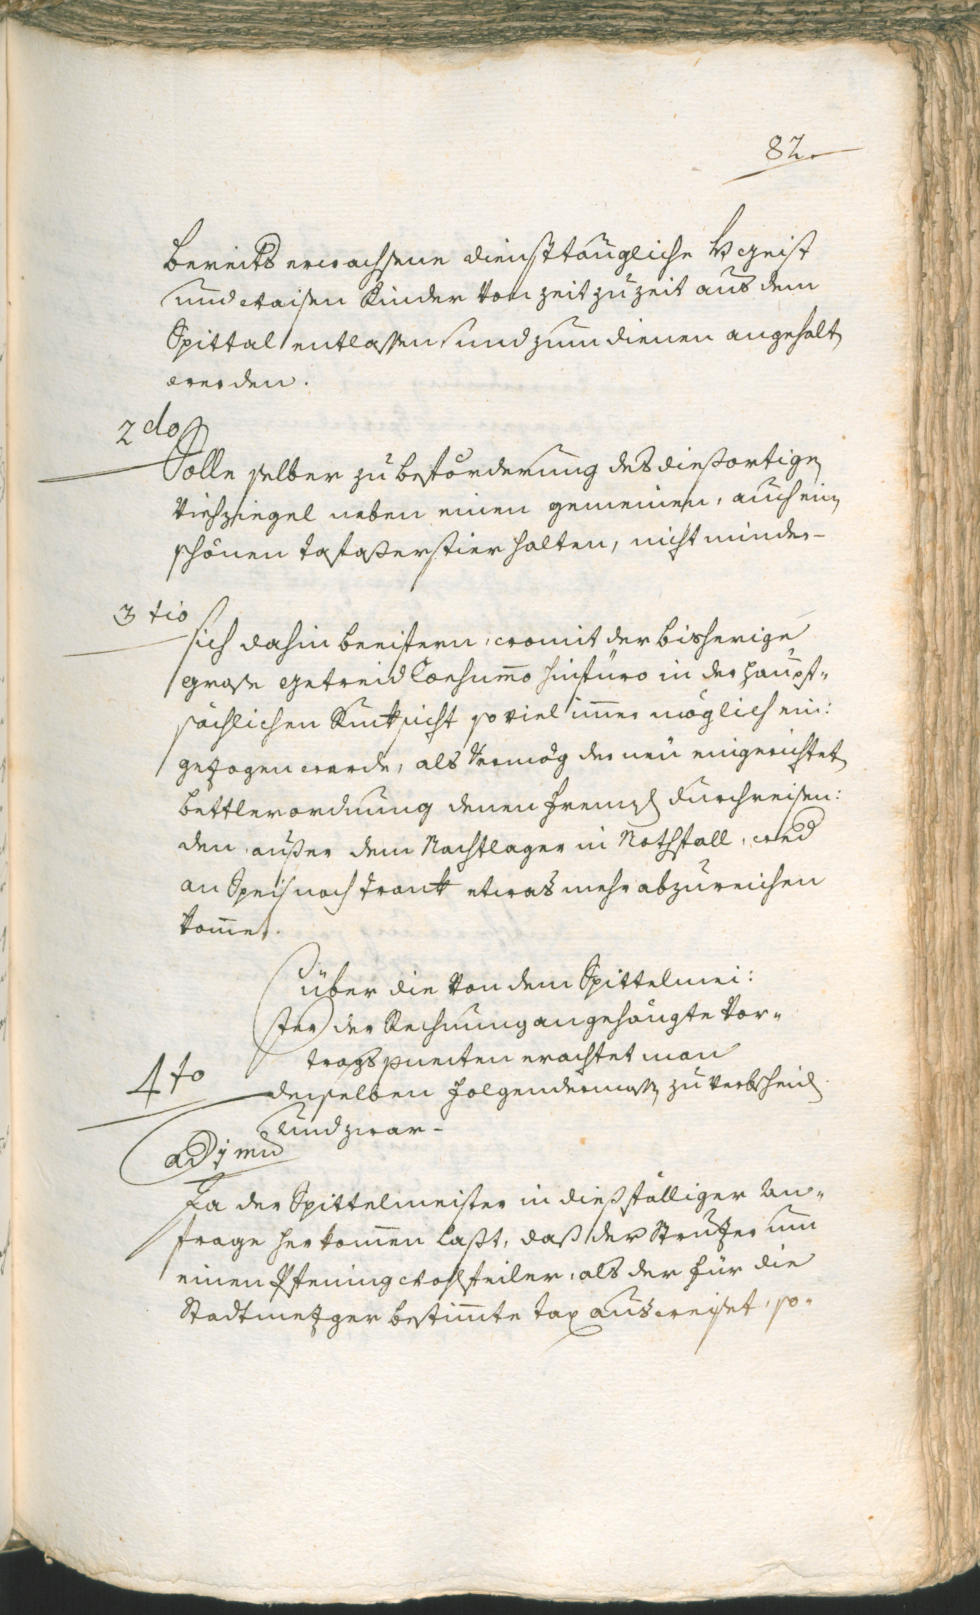 82.
bereits erwachsene diensttaugliche H: Geist
und Waisen Kinder von Zeit zu Zeit aus dem
Spittal entlassen und zum dienen angehalt
werden.
2do
Solle selber zu beförderung des diesortigen
Viehziegel neben einen gemeinen, auch ein
schönen stier halten, nicht minder-
3tio
sich dahin beeifern, womit der bisherige
grosse Getreid Consumo hinfüro in der haupt-
sächlichen Rucksicht so viel immer möglich ein:
gezogen werde, als Vermög der neu eingerichtet
bettlerordnung denen fremd durchreisen:
den, ausser dem Nachtlager in Nothfall, wed
an Speis noch Trank etwas mehr abzureichen
kommet.
über die von dem Spittelmei:
ster der Rechnung angehängte Vor-
tragspuncten erachtet man
4to
derselben folgendermass zu verbscheid
und zwar-
ad 1mu
Da der Spittelmeister in diesfälliger An-
frage herkommen lasst, dass der Strützer um
einen Pfening wohlfeiler, als der für die
Stadtmetzger bestimmte tax ausweiset, so-